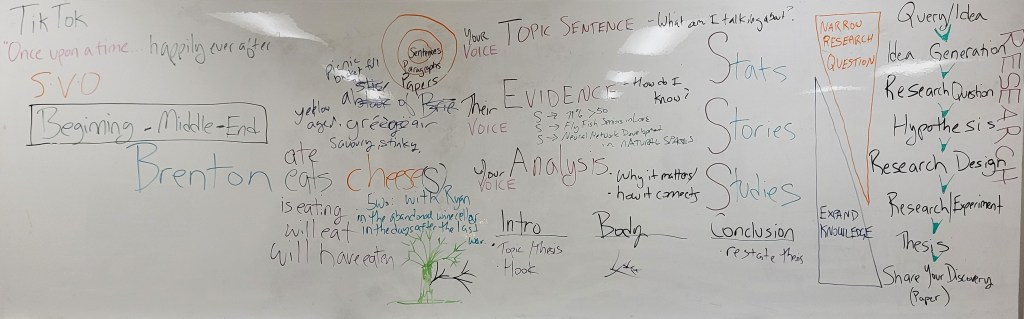 TikTok
"Once upon a time... happily ever after"
SVO
Beginning - Middle - End
Sentences
Paragraphs
Papers
picnic
yellow
aged.
a
of
savoury stinky
Brenton
ate
eats
cheese(s)
is eating
will eat
will have eaten
5ws: with Ryan
in the abandoned wine cellar
in the days after the last
war.
Your
VOICE
TOPIC SENTENCE
- What am I talking about?
Their
VOICE
EVIDENCE
- How do I
know?
S → 71% >50
S →
S → Neural Network Development
in NATURAL SPACES
Your
VOICE
Analysis
- Why it matters/
- how it connects
Intro
· Topic/Thesis
Hook
Body
Conclusion
· restate thesis
Stats
Stories
Studies
NARROW
RESEARCH
QUESTION
EXPAND
KNOWLEDGE
Query/Idea
Idea Generation
Research Question
Hypothesis
Research Design
Research/Experiment
Thesis
Share Your Discovery
(Paper)
RESEARCH